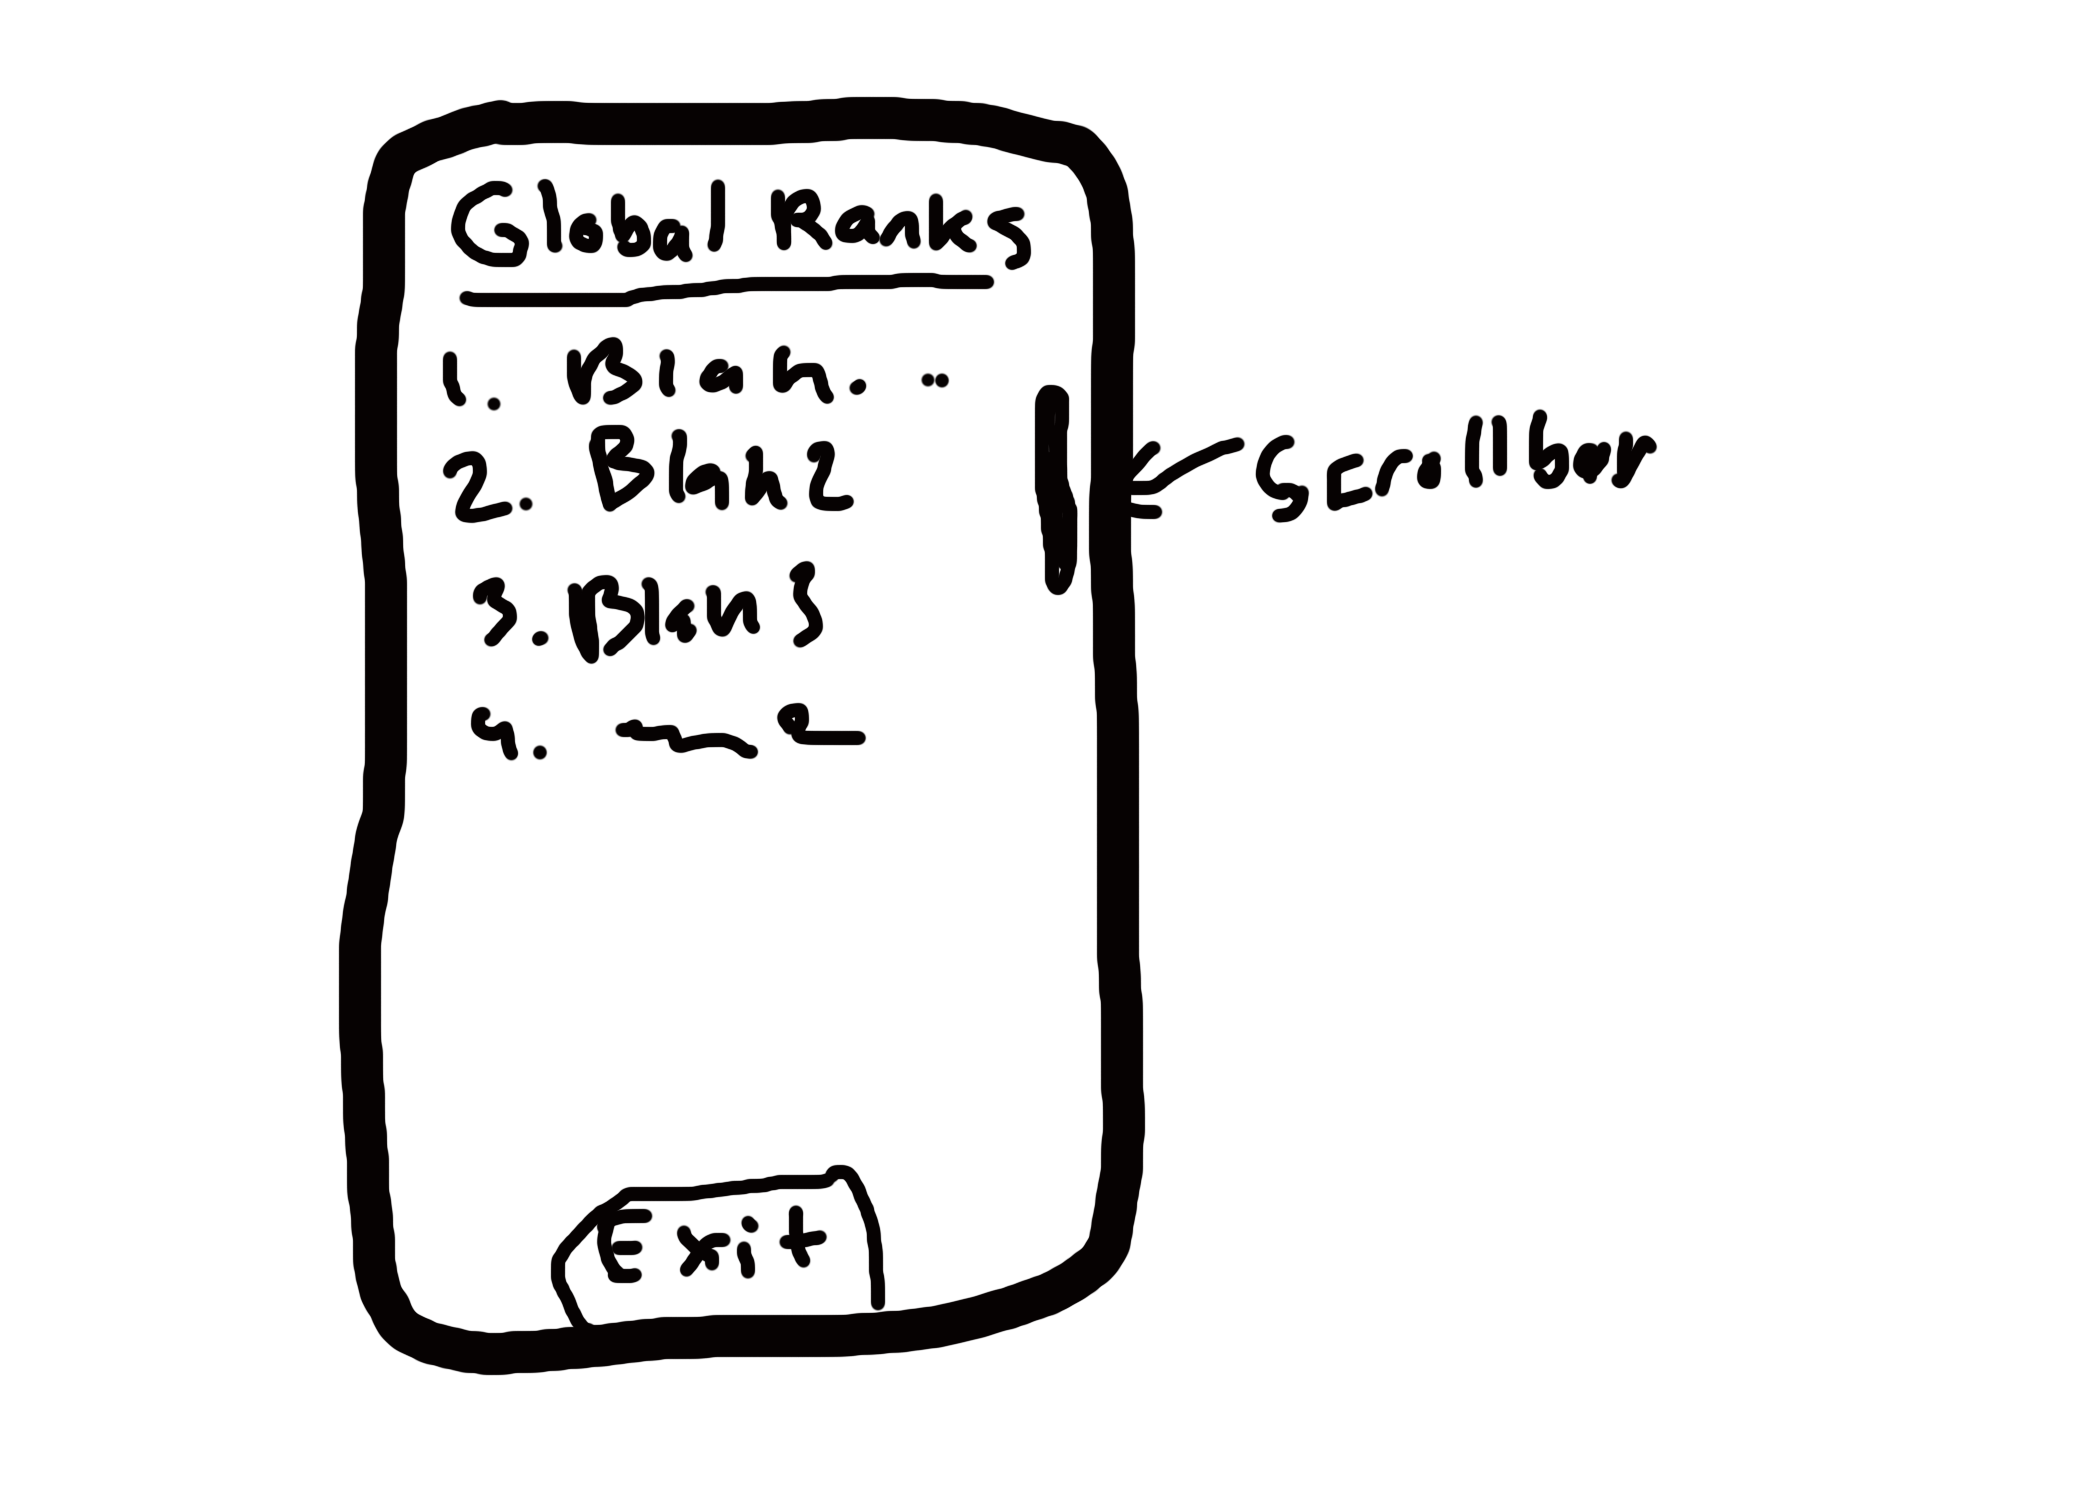 Global Ranks
1. Blah. ..
2. Blah 2
3. Blah 3
4.
Exit
Scrollbar